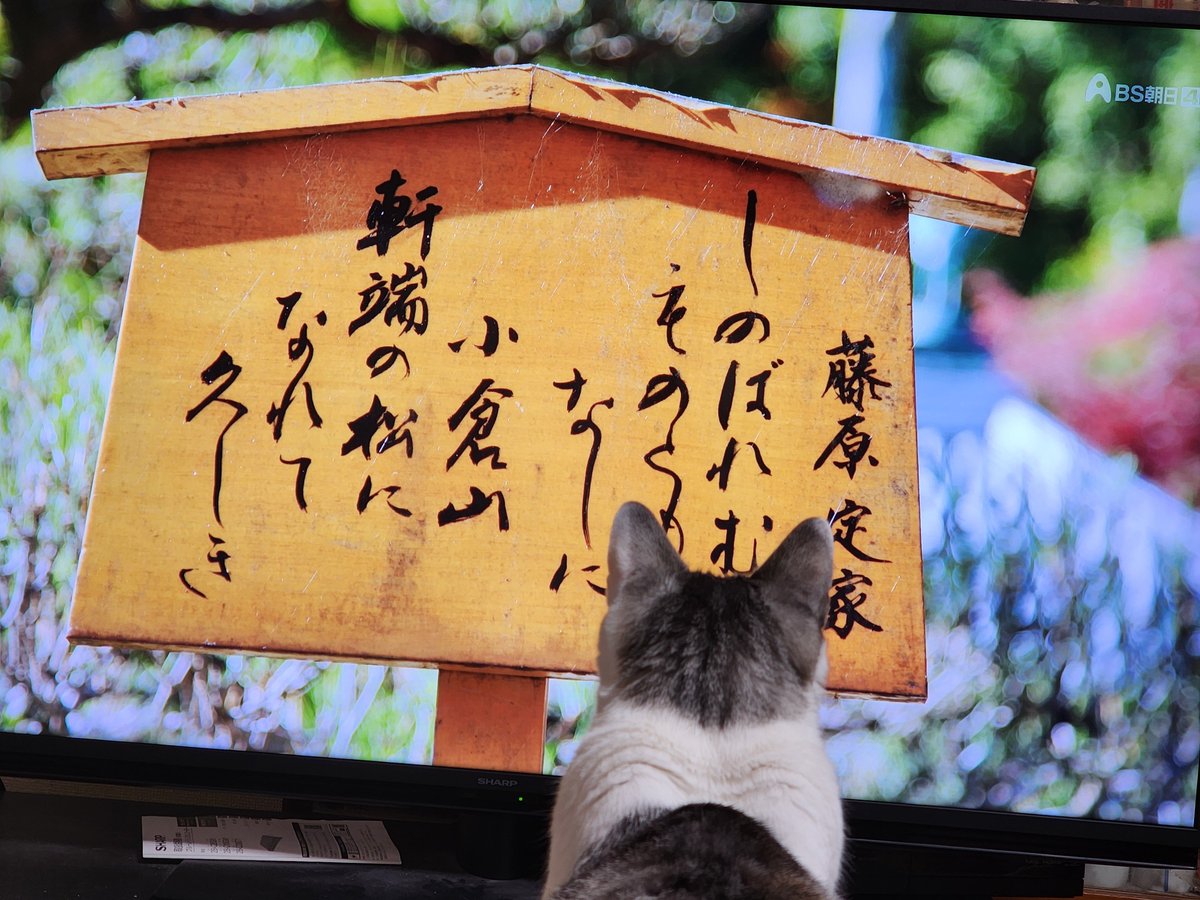 BS朝日
藤原定家
しのばれむ
ものとも
なしに
小倉山
軒端の松に
なれて
久しき
SHARP
SHARP